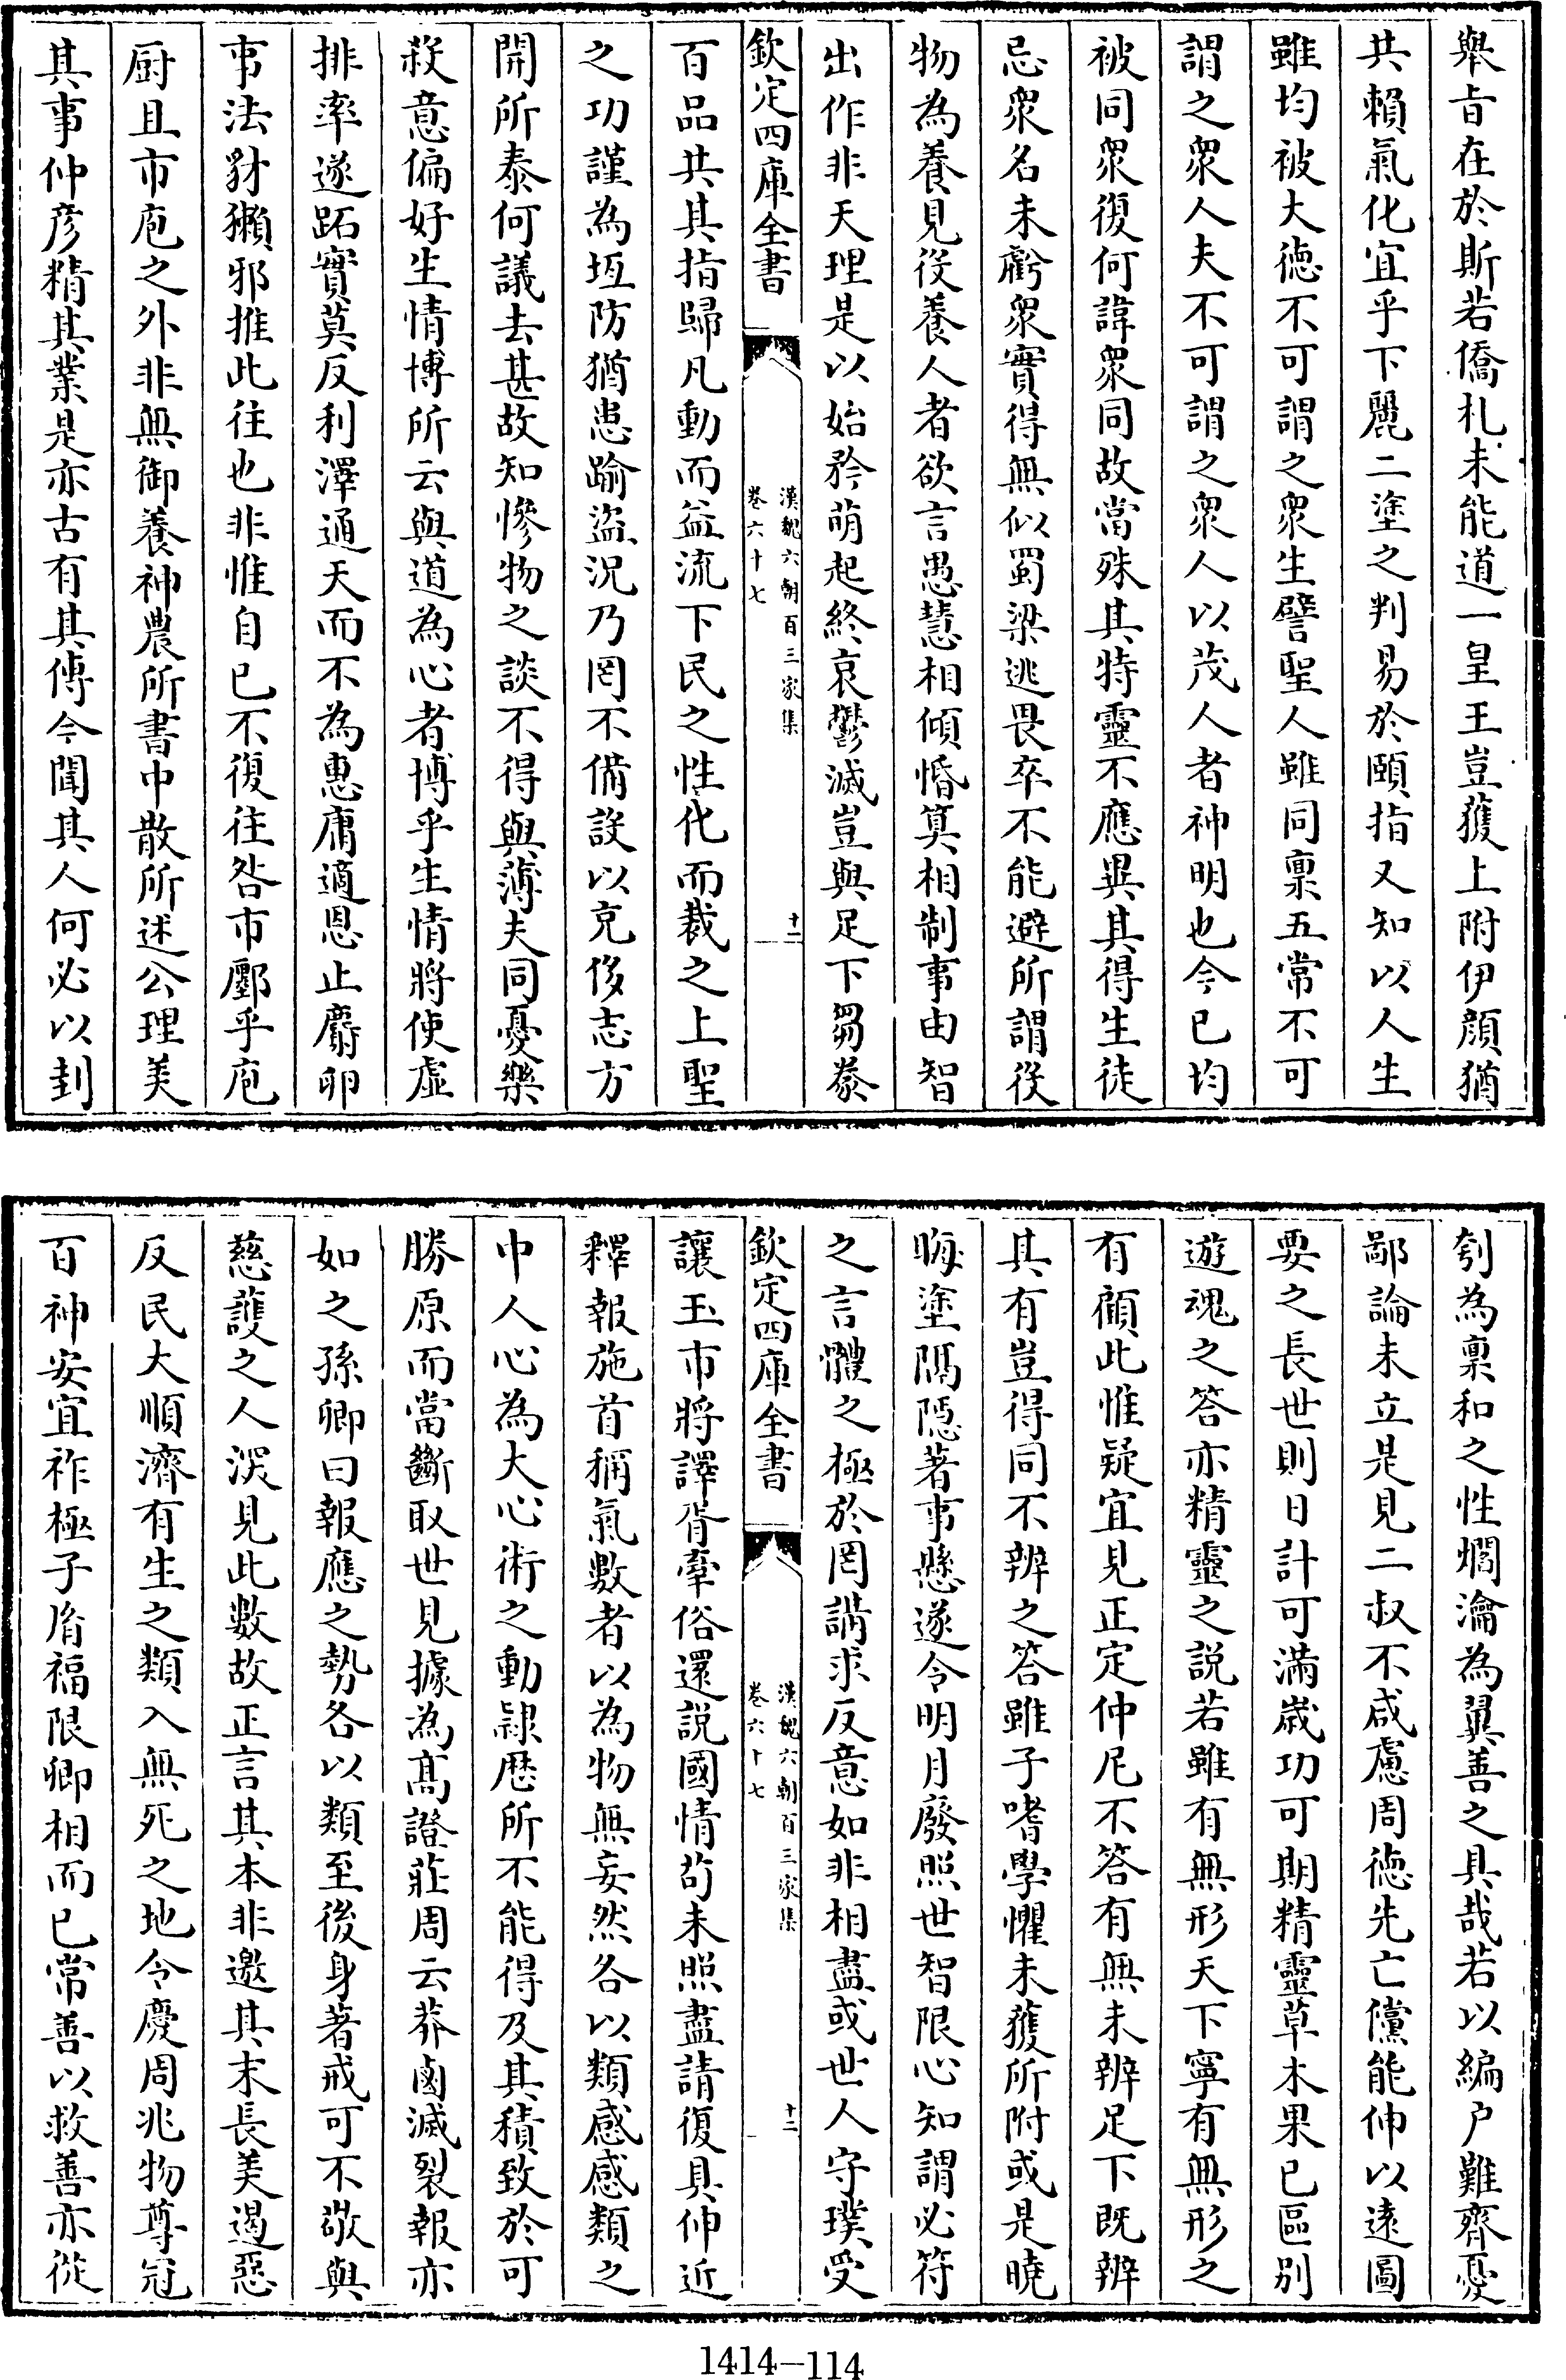 舉㫖在於斯若僑札未能道一皇王豈獲上附伊顔猶
共頼氣化宜乎下麗二塗之判易於頤指又知以人生
雖均被大徳不可謂之衆生譬聖人雖同禀五常不可
謂之衆人夫不可謂之衆人以茂人者神明也今已均
被同衆復何諱衆同故當殊其特靈不應異其得生徒
忌衆名未虧衆實得無似蜀梁逃畏卒不能避所謂役
物為養見役養人者欲言愚慧相傾惛算相制事由智
出作非天理是以始矜萌起終哀鬱滅豈與足下芻豢
欽定四庫全書
漢魏六朝百三家集
卷六十七
十二
百品共其指歸凡動而益流下民之性化而裁之上聖
之功謹為垣防猶患踰盜況乃罔不備設以充侈志方
開所泰何議去甚故知慘物之談不得與薄夫同憂樂
殺意偏好生情博所云與道為心者博乎生情將使虛
排率遂跖實莫反利澤通天而不為惠庸適恩止麛卵
事法豺獺邪推此往也非惟自已不復往咎市鄽乎庖
厨且市庖之外非無御養神農所書中散所述公理美
其事仲彥精其業是亦古有其傳今聞其人何必以刲
刳為禀和之性爓瀹為翼善之具哉若以編户難齊憂
鄙論未立是見二叔不咸慮周徳先亡儻能伸以逺圖
要之長世則日計可滿歳功可期精靈草木果已區别
遊魂之答亦精靈之説若雖有無形天下寧有無形之
有顧此惟疑宜見正定仲尼不答有無未辨足下既辨
其有豈得同不辨之答雖子嗜學懼未獲所附或是曉
晦塗隔隱著事懸遂令明月廢照世智限心知謂必符
之言體之極於罔講求反意如非相盡或世人守璞受
欽定四庫全書
漢魏六朝百三家集
卷六十七
十二
讓玉市將譯胥牽俗還説國情苟未照盡請復具伸近
釋報施首稱氣數者以為物無妄然各以類感感類之
中人心為大心術之動隷歴所不能得及其積致於可
勝原而當斷取世見據為髙證莊周云莽鹵滅裂報亦
如之孫卿曰報應之勢各以類至後身著戒可不敬與
慈護之人深見此數故正言其本非邀其末長美遏惡
反民大順濟有生之類入無死之地令慶周兆物尊冠
百神安宜祚極子胥福限卿相而已常善以救善亦從
1414-114